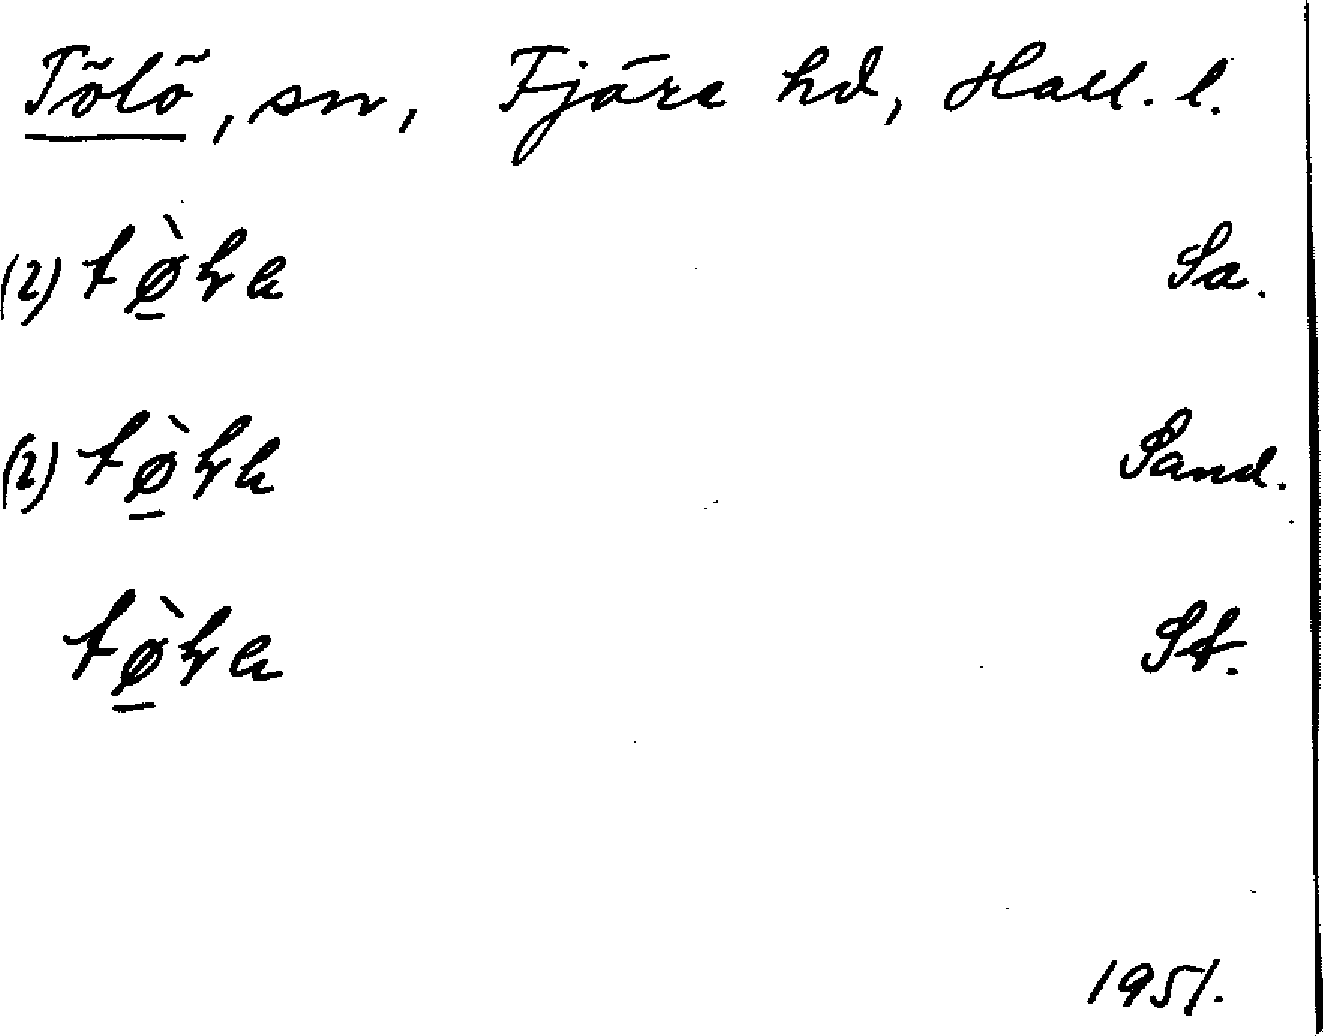 Tölö, sn, Fjäre hd, Hall. l.
(2) tø̲̀ɽa Sa.
(2) tø̲̀ɽa Sand.
tø̲̀ɽa St.
1951.